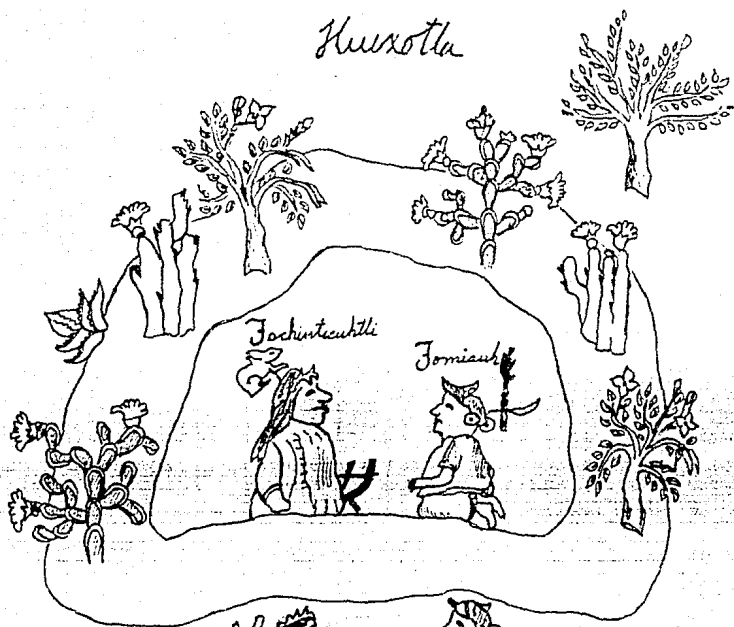 Huexotla
Tochintecuhtli
Tomiauh